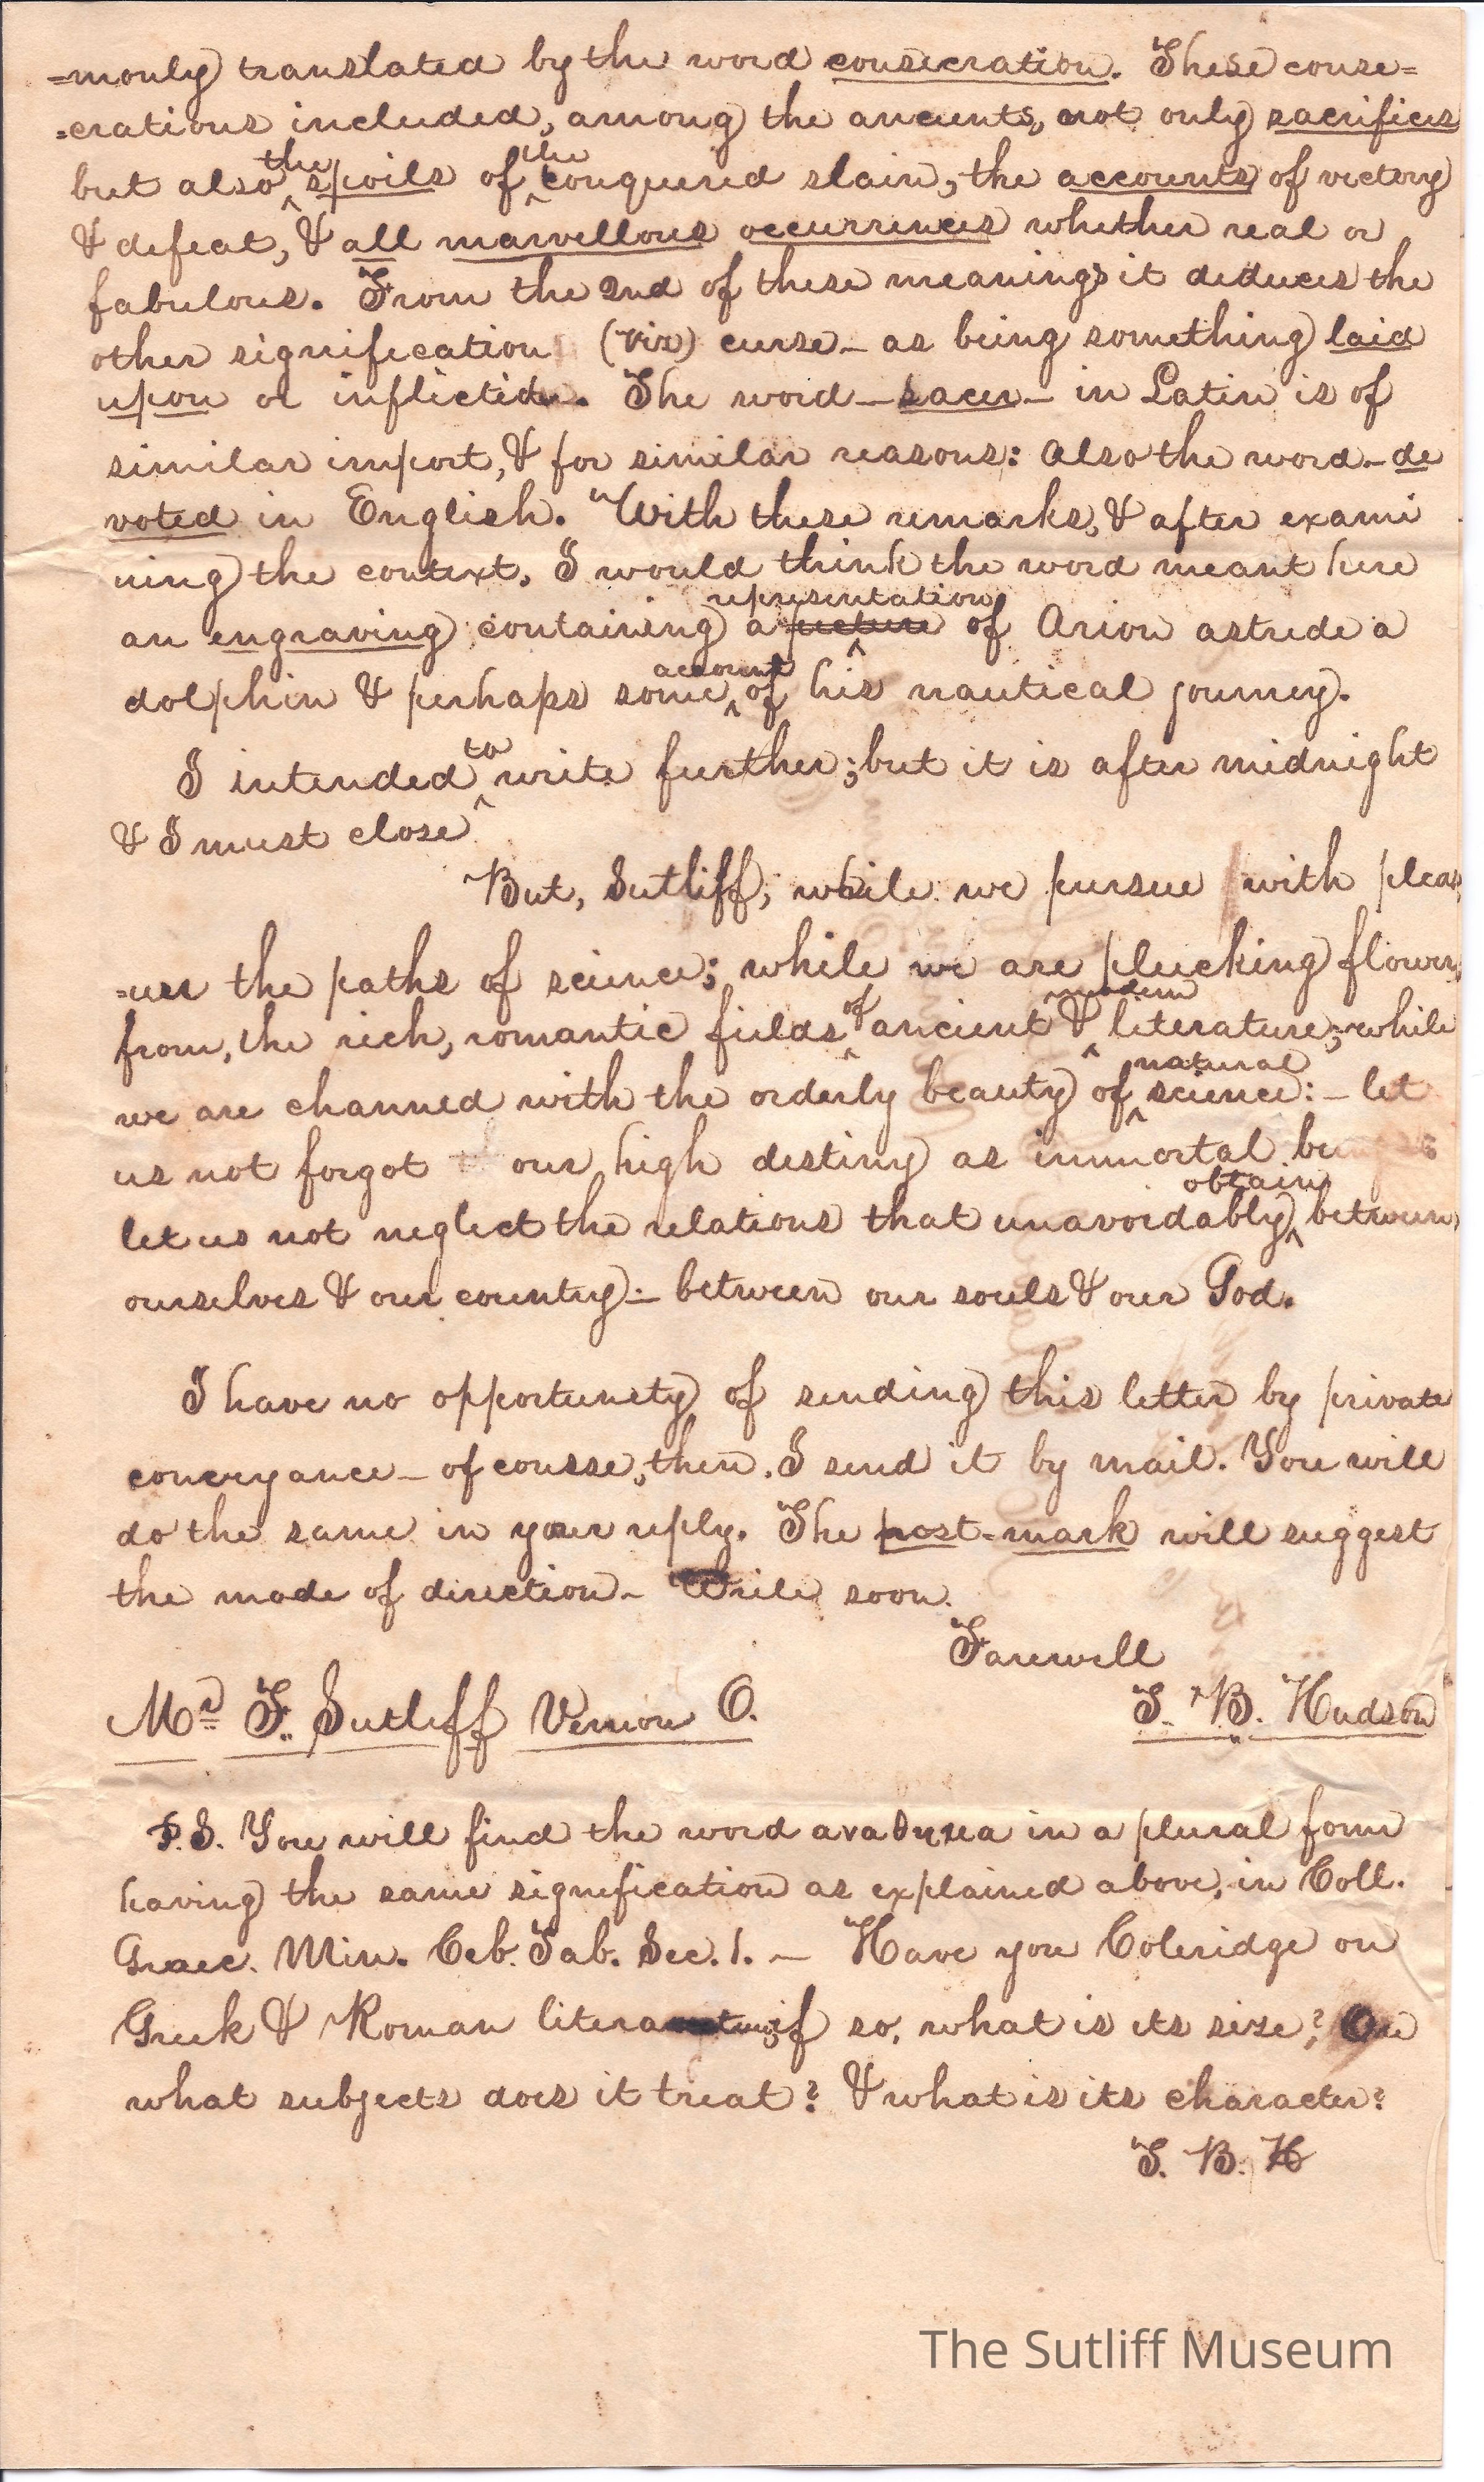 =monly translated by the word consecration. These conse=
=crations included, among the ancients, not only sacrifices
but also the spoils of the conquered slain, the accounts of victory
& defeat, & all marvellous occurrences whether real or
fabulous. From the 2nd of these meanings it deduces the
other signification (viz) curse – as being something laid
upon or inflicted. The word – sacer – in Latin is of
similar import, & for similar reasons: also the word – de
voted in English. With these remarks, & after exami
ning the context, I would think the word meant here
an engraving containing a picture representation of Arion astride a
dolphin & perhaps some account of his nautical journey.
I intended to write further; but it is after midnight
& I must close
But, Sutliff; while we pursue with pleas
=ure the paths of science; while we are plucking flowers
from, the rich, romantic fields of ancient & modern literature; while
we are charmed with the orderly beauty of natural science: – let
us not forgot our high destiny as immortal beings
let us not neglect the relations that unavoidably obtain between
ourselves & our country: – between our souls & our God.
I have no opportunity of sending this letter by private
conveyance – of course, then, I send it by mail. You will
do the same in your reply. The post-mark will suggest
the mode of direction – Write soon.
Farewell
Mr. F. Sutliff Vernon O.
T. B. Hudson
P.S. You will find the word αναθημα in a plural form
having the same signification as explained above, in Coll.
Graec. Min. Ceb. Tab. Sec. 1. – Have you Coleridge on
Greek & Roman literature; if so, what is its size? On
what subjects does it treat? & what is its character?
T. B. H
The Sutliff Museum